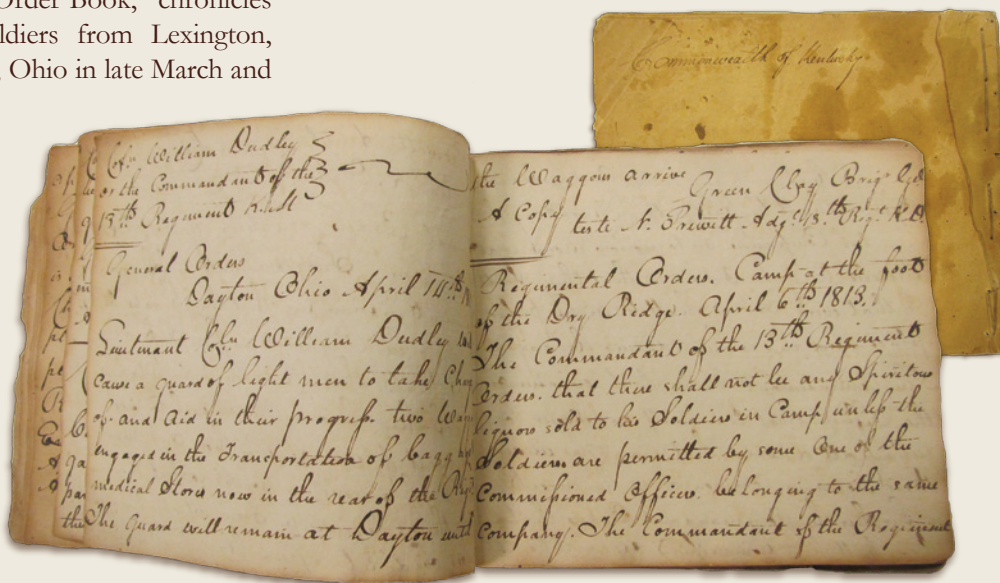 Order Book," chronicles
ldiers from Lexington,
Ohio in late March and
Commonwealth of Kentucky
Coln William Dudley
or the Commandant of the
13th Regiment
General Orders
Dayton Ohio April 14th
Lieutenant Coln William Dudley
cause a guard of eight men to take
of and aid in their progress two
engaged in the Transportation of
medical Stores now in the rear of the
The Guard will remain at Dayton until
the Waggons arrive
Green Clay Brigr
A Copy
teste N. Prewitt Adjt 13th Regt
Regimental Orders. Camp at the foot
of the Dry Ridge. April 6th 1813.
The Commandant of the 13th Regiment
Orders. that there shall not be any Spiritous
liquors sold to his Soldiers in Camp unless the
Soldiers are permitted by some One of the
Commissioned Officers belonging to the same
company. The Commandant of the Regiment